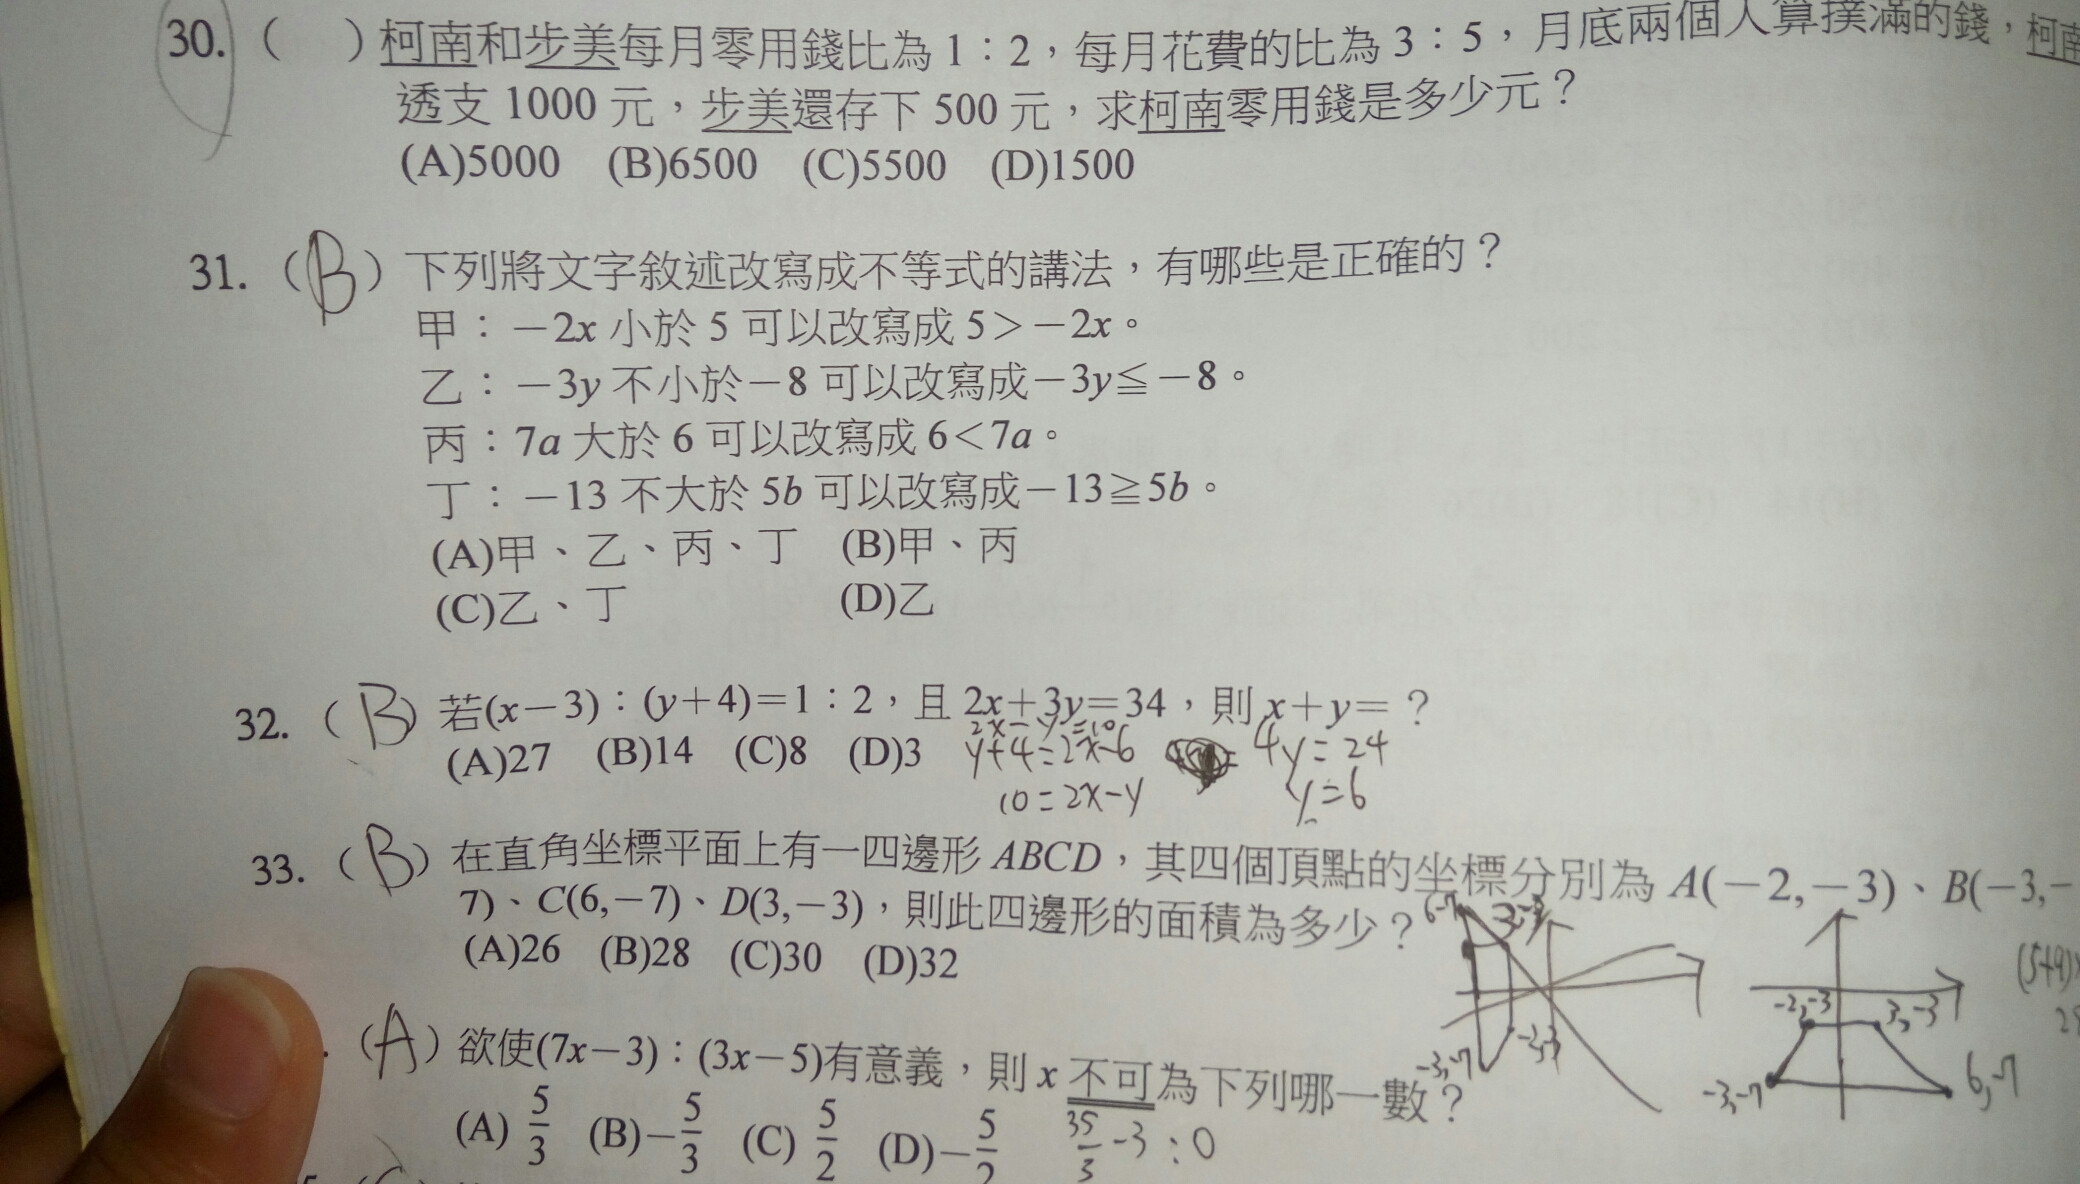 30. ( ) 柯南和步美每月零用錢比為 1：2，每月花費的比為 3：5，月底兩個人算撲滿的錢，柯南
透支 1000 元，步美還存下 500 元，求柯南零用錢是多少元？
(A)5000 (B)6500 (C)5500 (D)1500
31. (B) 下列將文字敘述改寫成不等式的講法，有哪些是正確的？
甲：－2x 小於 5 可以改寫成 5＞－2x。
乙：－3y 不小於－8 可以改寫成－3y≦－8。
丙：7a 大於 6 可以改寫成 6＜7a。
丁：－13 不大於 5b 可以改寫成－13≧5b。
(A)甲、乙、丙、丁 (B)甲、丙
(C)乙、丁 (D)乙
32. (B) 若(x－3)：(y＋4)＝1：2，且 2x＋3y＝34，則 x＋y＝？
2x-y=10
(A)27 (B)14 (C)8 (D)3 y+4=2x-6 4y=24
10=2x-y y=6
33. (B) 在直角坐標平面上有一四邊形 ABCD，其四個頂點的坐標分別為 A(－2,－3)、B(－3,－
7)、C(6,－7)、D(3,－3)，則此四邊形的面積為多少？ 6,-7 3,-3
(A)26 (B)28 (C)30 (D)32 (5+9)
-2,-3 3,-3
. (A) 欲使(7x－3)：(3x－5)有意義，則 x 不可為下列哪一數？ -3,-7 -2,-3 -3,-7 6,-7
(A) 5/3 (B)－5/3 (C) 5/2 (D)－5/2 35/3 -3 : 0